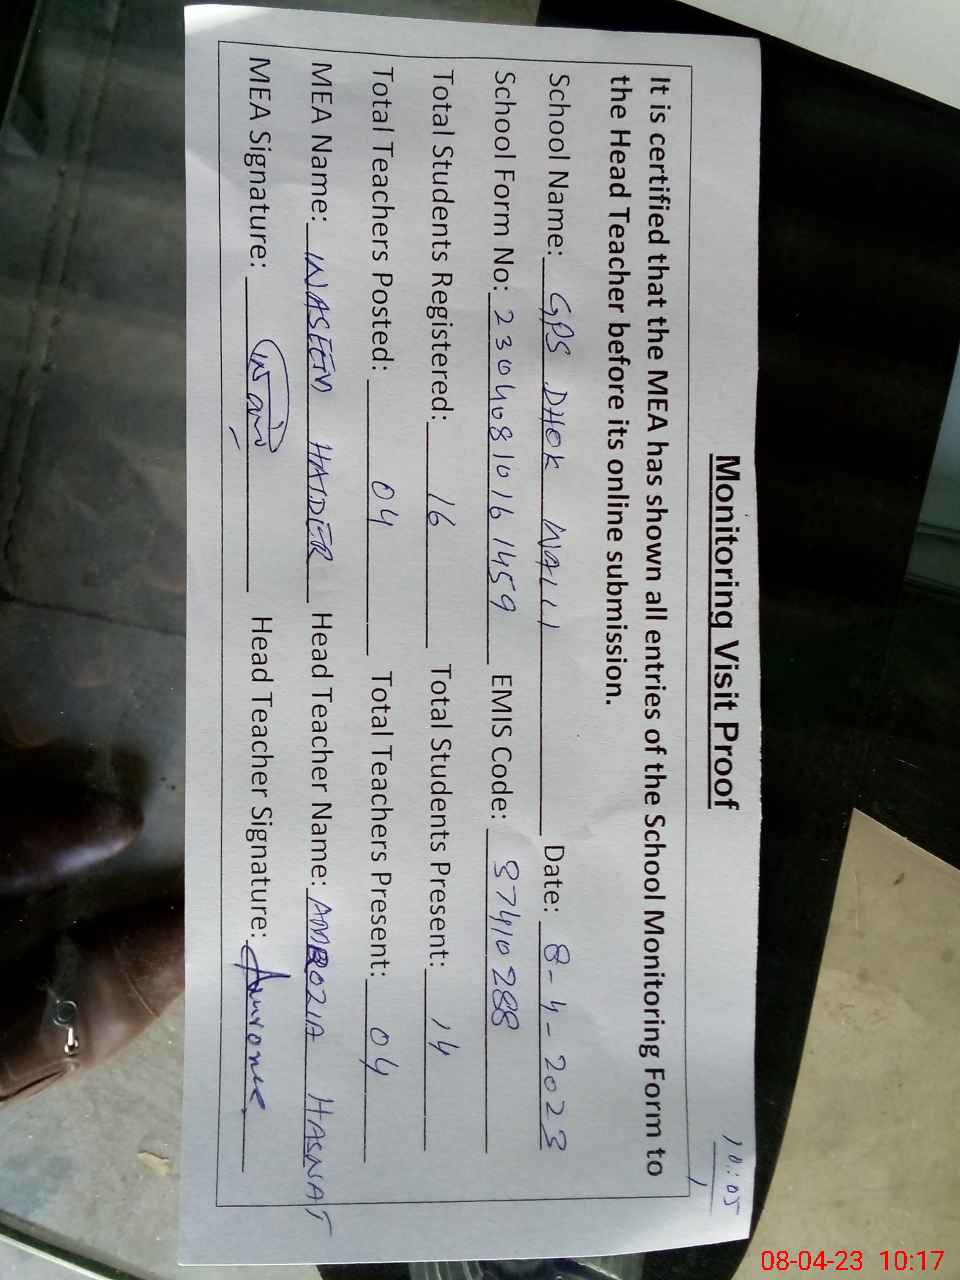 Monitoring Visit Proof
10:05
It is certified that the MEA has shown all entries of the School Monitoring Form to
the Head Teacher before its online submission.
School Name: GPS DHOK WALLI Date: 8-4-2023
School Form No: 23040810161459 EMIS Code: 37410288
Total Students Registered: 16 Total Students Present: 14
Total Teachers Posted: 04 Total Teachers Present: 04
MEA Name: WASEEM HAIDER Head Teacher Name: HASNAT
MEA Signature: Head Teacher Signature:
08-04-23 10:17